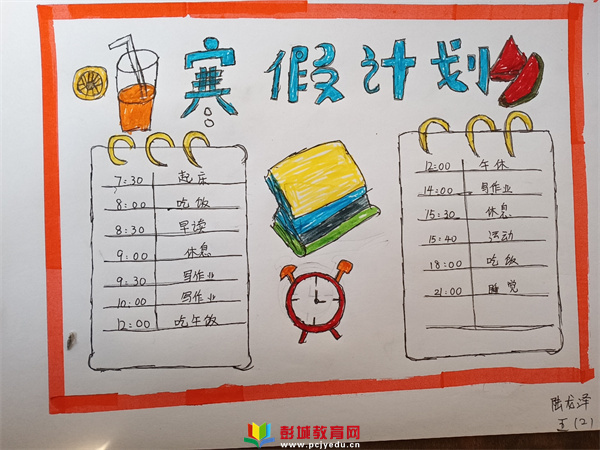 寒假计划
7:30 起床
8:00 吃饭
8:30 早读
9:00 休息
9:30 写作业
10:00 写作业
12:00 吃午饭
12:00 午休
14:00 写作业
15:30 休息
15:40 运动
18:00 吃饭
21:00 睡觉
陆龙泽
五(2)
彭城教育网
www.pcjyedu.cn